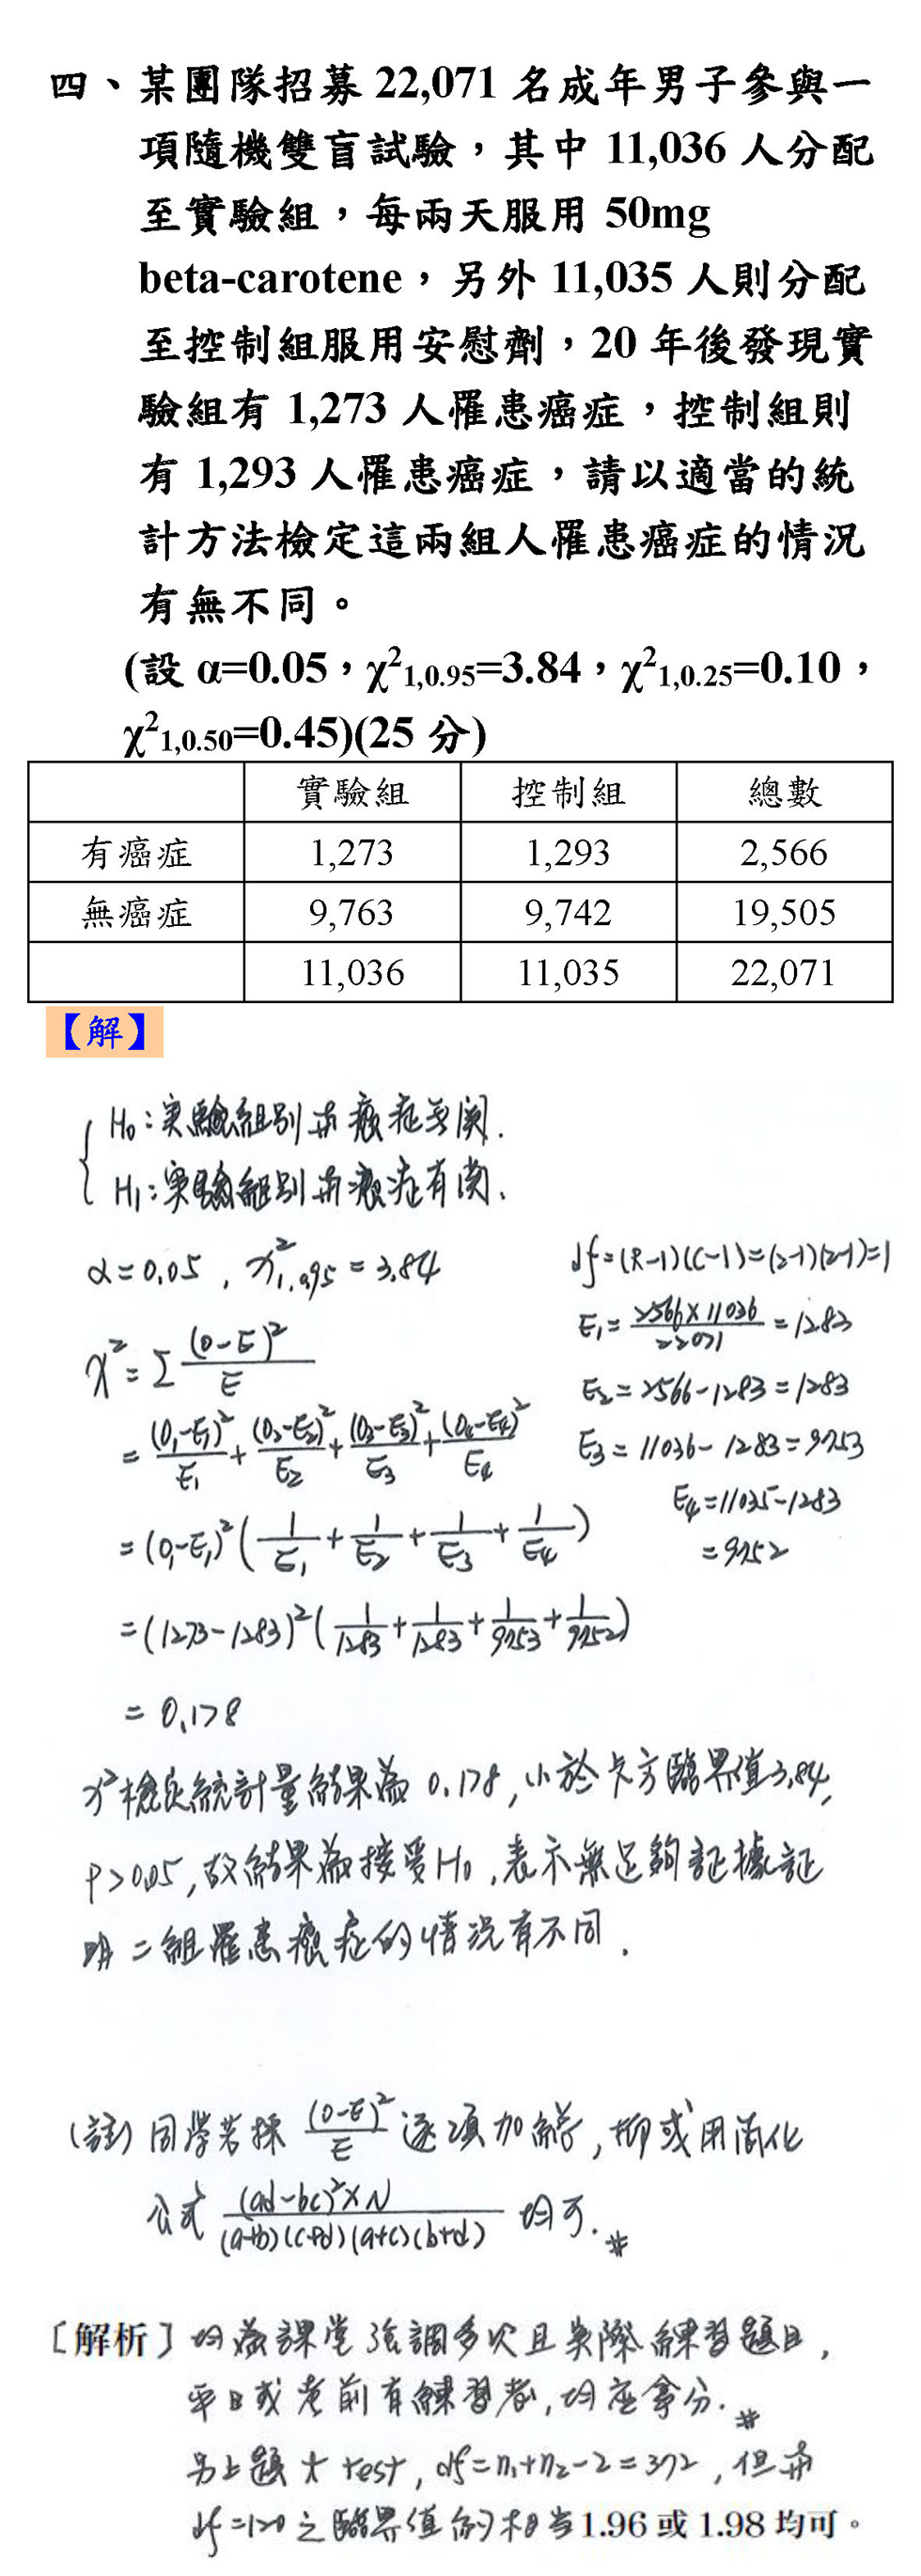 四、某團隊招募 22,071 名成年男子參與一
項隨機雙盲試驗，其中 11,036 人分配
至實驗組，每兩天服用 50mg
beta-carotene，另外 11,035 人則分配
至控制組服用安慰劑，20 年後發現實
驗組有 1,273 人罹患癌症，控制組則
有 1,293 人罹患癌症，請以適當的統
計方法檢定這兩組人罹患癌症的情況
有無不同。
(設 α=0.05，χ²1,0.95=3.84，χ²1,0.25=0.10，
χ²1,0.50=0.45)(25 分)
實驗組 控制組 總數
有癌症 1,273 1,293 2,566
無癌症 9,763 9,742 19,505
11,036 11,035 22,071
【解】
H₀:实驗組別與癌症無関.
H₁:实驗組別與癌症有関.
α=0.05, χ²1,0.95=3.84
df=(R-1)(C-1)=(2-1)(2-1)=1
E₁=2566×11036/22071=1283
χ²=Σ(O-E)²/E
E₂=2566-1283=1283
=(O₁-E₁)²/E₁+(O₂-E₂)²/E₂+(O₃-E₃)²/E₃+(O₄-E₄)²/E₄
E₃=11036-1283=9753
E₄=11035-1283
=9752
=(O₁-E₁)²(1/E₁+1/E₂+1/E₃+1/E₄)
=(1273-1283)²(1/1283+1/1283+1/9753+1/9752)
=0.178
χ²檢定統計量結果為 0.178,小於卡方臨界值3.84,
P>0.05,故結果為接受H₀,表示無足夠証據証
明二組罹患癌症的情況有不同.
(註)同學若採 (O-E)²/E 逐項加總,抑或用簡化
公式 (ad-bc)²×N/(a+b)(c+d)(a+c)(b+d) 均可.#
［解析］均為課堂強調多次且実際練習題目,
平日或考前有練習者,均應拿分.#
另上題 t test, df=n₁+n₂-2=372,但與
df=120之臨界值的相当1.96 或 1.98 均可。